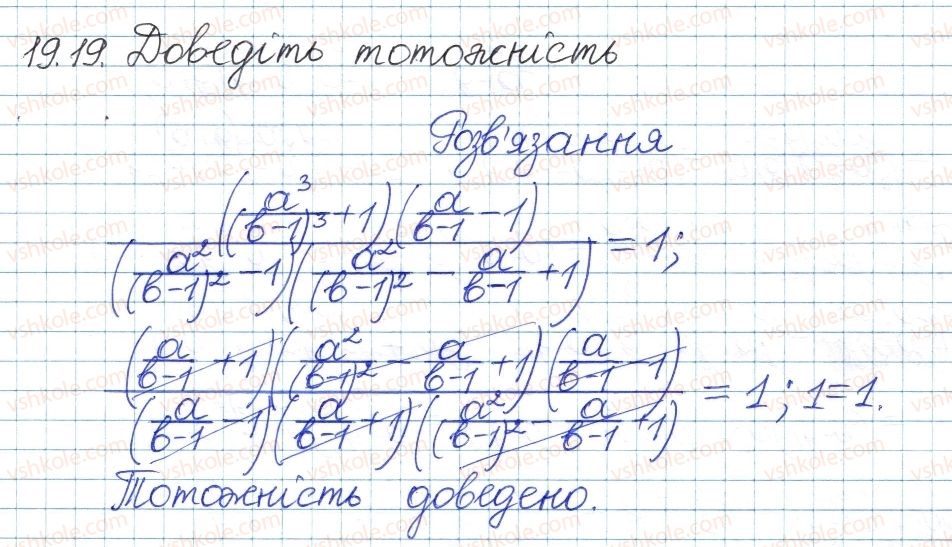 19.19. Доведіть тотожність
Розв'язання
((a³/(в-1)³ + 1)(a/(в-1) - 1)) / ((a²/(в-1)² - 1)(a²/(в-1)² - a/(в-1) + 1)) = 1;
((a/(в-1) + 1)(a²/(в-1)² - a/(в-1) + 1)(a/(в-1) - 1)) / ((a/(в-1) - 1)(a/(в-1) + 1)(a²/(в-1)² - a/(в-1) + 1)) = 1; 1=1.
Тотожність доведено.